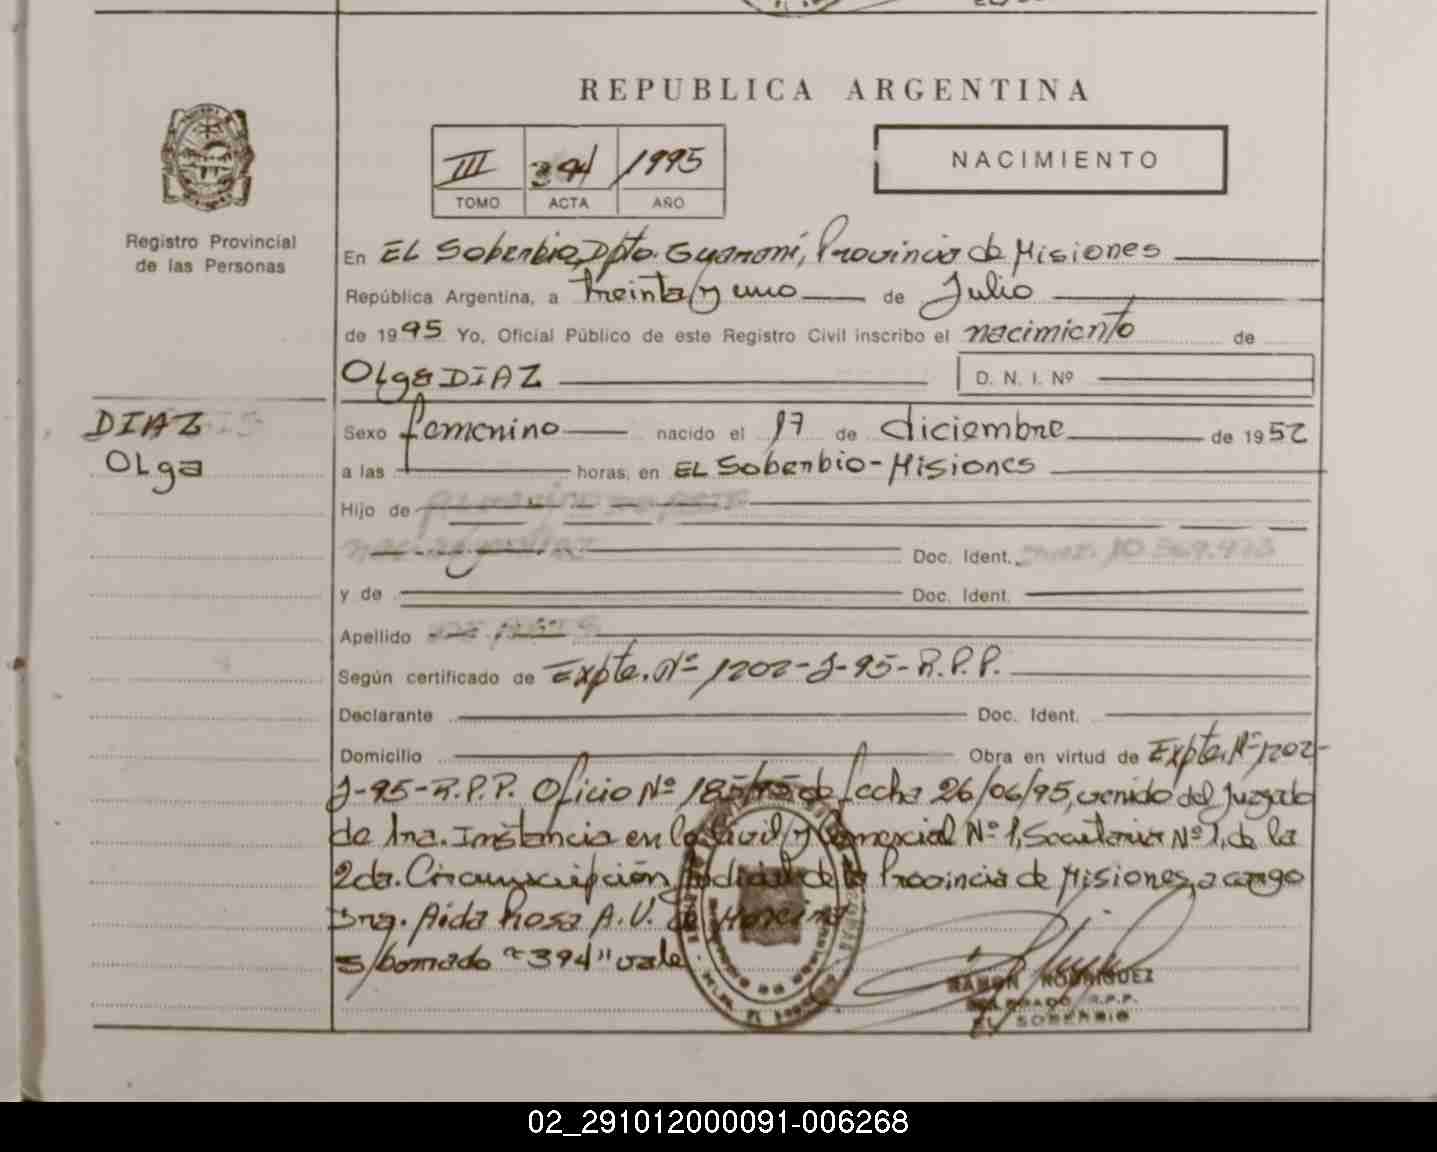 REPUBLICA ARGENTINA
III 394 1995
TOMO ACTA AÑO
NACIMIENTO
Registro Provincial
de las Personas
En EL Soberbio, Dpto. Guaraní, Provincia de Misiones
República Argentina, a treinta y uno de Julio
de 1995 Yo, Oficial Público de este Registro Civil inscribo el nacimiento de
Olga DIAZ
D. N. I. Nº
DIAZ
OLga
Sexo femenino nacido el 17 de diciembre de 1952
a las horas, en EL Soberbio - Misiones
Hijo de
Doc. Ident.
y de Doc. Ident.
Apellido
Según certificado de Expte. Nº 1202-J-95-R.P.P.
Declarante Doc. Ident.
Domicilio Obra en virtud de Expte. Nº 1202-
J-95-R.P.P. Oficio Nº 185/95 de fecha 26/06/95, venido del Juzgado
de 1ra. Instancia en lo Civil y Comercial Nº 1, Secretaria Nº 1, de la
2da. Circunscripción Judicial de la Provincia de Misiones, a cargo
Dra. Aida Rosa A. V. de
s/borrado "394" vale
RAMON RODRIGUEZ
DELEGADO R.P.P.
EL SOBERBIO
02_291012000091-006268